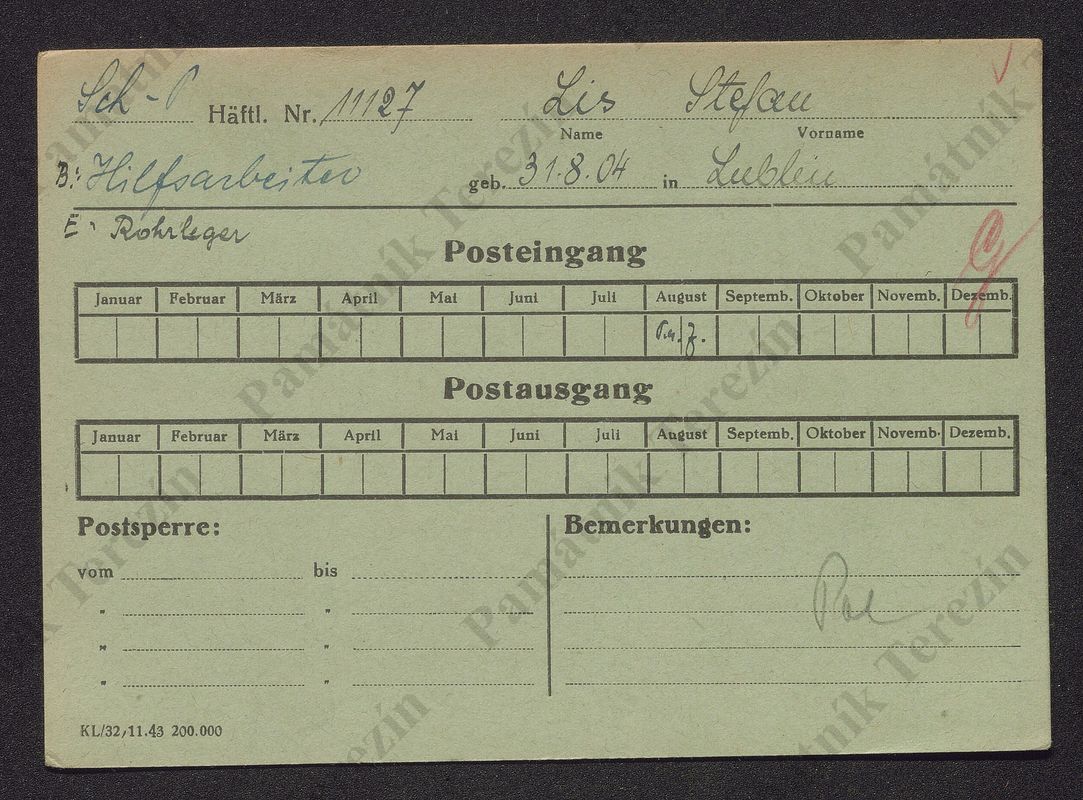 Sch - P Häftl. Nr. 11127 Lis Stefan
Name Vorname
B: Hilfsarbeiter geb. 31.8.04 in Lublin
E: Rohrleger
Posteingang
Januar Februar März April Mai Juni Juli August Septemb. Oktober Novemb. Dezemb.
Postausgang
Januar Februar März April Mai Juni Juli August Septemb. Oktober Novemb. Dezemb.
Postsperre: Bemerkungen:
vom bis
" "
Pol
" "
" "
KL/32, 11.43 200.000
Památník Terezín